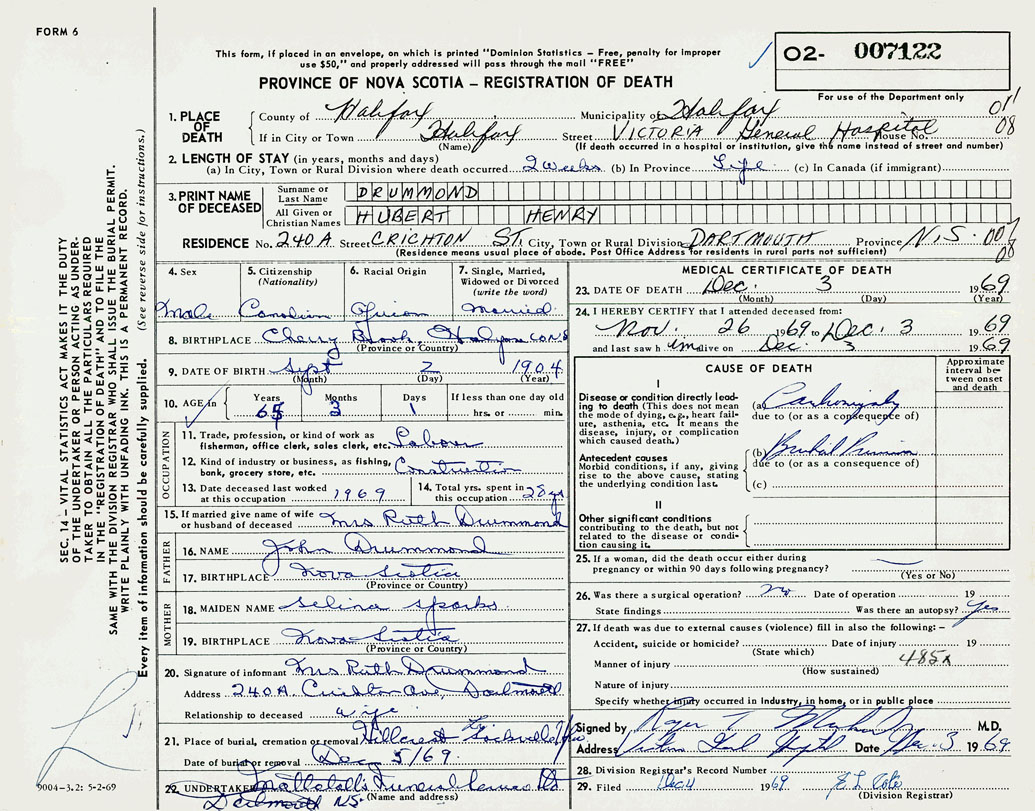 FORM 6
This form, if placed in an envelope, on which is printed "Dominion Statistics – Free, penalty for improper
use $50," and properly addressed will pass through the mail "FREE"
O2- 007122
PROVINCE OF NOVA SCOTIA – REGISTRATION OF DEATH
For use of the Department only
1. PLACE OF DEATH
County of Halifax Municipality of Halifax 011
If in City or Town Halifax Street VICTORIA General Hospital House No. 08
(Name) (If death occurred in a hospital or institution, give the name instead of street and number)
2. LENGTH OF STAY (in years, months and days)
(a) In City, Town or Rural Division where death occurred 2 weeks (b) In Province Life (c) In Canada (if immigrant)
3. PRINT NAME OF DECEASED
Surname or Last Name DRUMMOND
All Given or Christian Names HUBERT HENRY
RESIDENCE No. 240A Street CRICHTON ST. City, Town or Rural Division DARTMOUTH Province N.S.
(Residence means usual place of abode. Post Office Address for residents in rural parts not sufficient) 08
4. Sex
Male
5. Citizenship (Nationality)
Canadian
6. Racial Origin
7. Single, Married, Widowed or Divorced (write the word)
Married
8. BIRTHPLACE Cherry Brook, Halifax Co NS
(Province or Country)
9. DATE OF BIRTH Sept 2 1904
(Month) (Day) (Year)
10. AGE in Years Months Days If less than one day old
65 3 1 hrs. or min.
OCCUPATION
11. Trade, profession, or kind of work as
fisherman, office clerk, sales clerk, etc. Labour
12. Kind of industry or business, as fishing,
bank, grocery store, etc. Construction
13. Date deceased last worked
at this occupation 1969
14. Total yrs. spent in
this occupation 28 yr
15. If married give name of wife
or husband of deceased Mrs Ruth Drummond
FATHER
16. NAME John Drummond
17. BIRTHPLACE Nova Scotia
(Province or Country)
MOTHER
18. MAIDEN NAME Selina Sparks
19. BIRTHPLACE Nova Scotia
(Province or Country)
20. Signature of informant Mrs Ruth Drummond
Address 240A Crichton Ave, Dartmouth
Relationship to deceased wife
21. Place of burial, cremation or removal Hillcrest
Date of burial or removal Dec 5/69.
22. UNDERTAKER Funeral
Dartmouth NS. (Name and address)
MEDICAL CERTIFICATE OF DEATH
23. DATE OF DEATH Dec. 3 1969
(Month) (Day) (Year)
24. I HEREBY CERTIFY that I attended deceased from:
Nov. 26 1969 to Dec. 3 1969
and last saw him alive on Dec. 3 1969
CAUSE OF DEATH
Approximate interval between onset and death
I
Disease or condition directly leading to death (This does not mean the mode of dying, e.g., heart failure, asthenia, etc. It means the disease, injury, or complication which caused death.)
(a)
due to (or as a consequence of)
Antecedent causes
Morbid conditions, if any, giving rise to the above cause, stating the underlying condition last.
(b)
due to (or as a consequence of)
(c)
II
Other significant conditions
contributing to the death, but not related to the disease or condition causing it.
25. If a woman, did the death occur either during
pregnancy or within 90 days following pregnancy?
(Yes or No)
26. Was there a surgical operation? no Date of operation 19
State findings Was there an autopsy? Yes
27. If death was due to external causes (violence) fill in also the following: –
Accident, suicide or homicide? Date of injury 19
(State which)
Manner of injury 485X
(How sustained)
Nature of injury
Specify whether injury occurred in Industry, in home, or in public place
Signed by Roger M.D.
Address Date Dec. 3 1969
28. Division Registrar's Record Number
29. Filed Dec 4 1969
(Division Registrar)
SEC. 14 – VITAL STATISTICS ACT MAKES IT THE DUTY
OF THE UNDERTAKER OR PERSON ACTING AS UNDER-
TAKER TO OBTAIN ALL THE PARTICULARS REQUIRED
IN THE "REGISTRATION OF DEATH" AND TO FILE THE
SAME WITH THE DIVISION REGISTRAR WHO SHALL ISSUE THE BURIAL PERMIT.
WRITE PLAINLY WITH UNFADING INK. THIS IS A PERMANENT RECORD.
Every item of information should be carefully supplied. (See reverse side for instructions.)
9004-3.2: 5-2-69